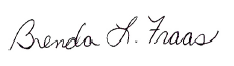 Brenda L. Fraas